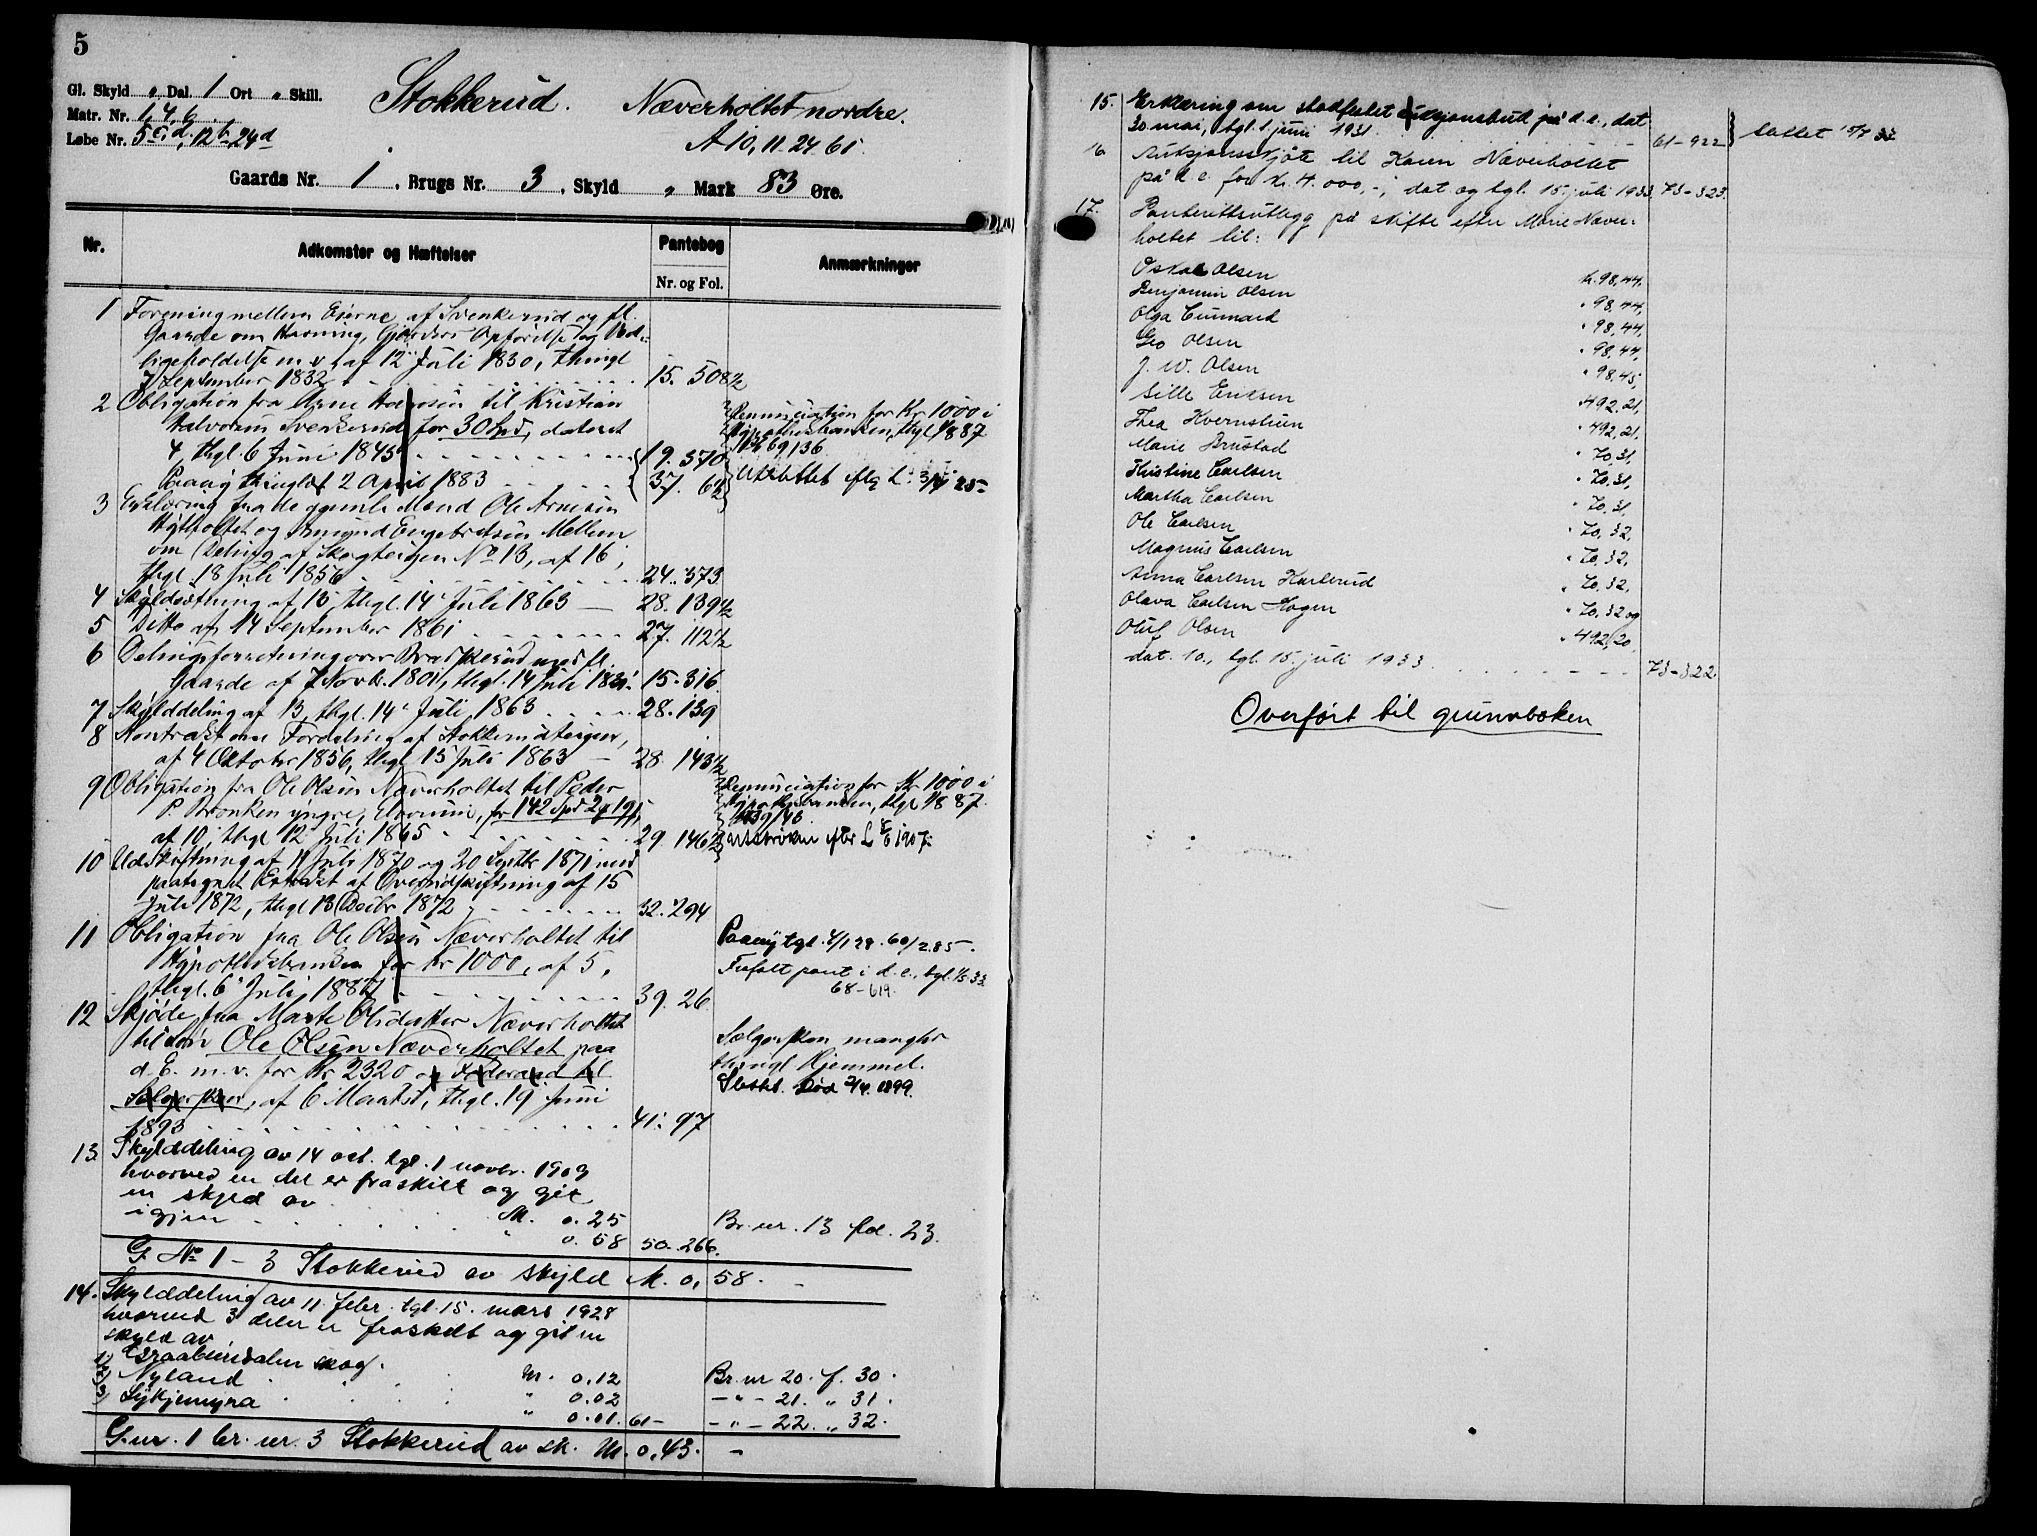 5
Gl. Skyld " Dal. 1 Ort " Skill.
Matr. Nr. 1, 4, 6
Løbe Nr. 5 c, d, 12 b - 24 d
Stokkerud. Næverholtet nordre.
A 10, 11. 24. 61.
Gaards Nr. 1, Brugs Nr. 3, Skyld " Mark 83 Øre.
Nr. Adkomster og Hæftelser Pantebog Nr. og Fol. Anmærkninger
1 Forening mellem Eierne af Svenkerud og fl.
Gaarde om Havning, Gjærders Opførelse og Ved-
ligeholdelse m. v. af 12 Juli 1830, thingl
7 September 1832 15. 508½
2 Obligation fra Arne til Kristian
Halvorsen Svenkerud for 30 Spd, dateret
4, thgl. 6 Juni 1845 19. 370
Paany thinglæst 2 April 1883 37. 6½
Renunciation for Kr 1000 i
Hypothekbanken, thgl 87
69/136
Utslettet efter L.
3 Erklæring fra de gamle Mænd Ole Arnesen
og Amund Engebretsen Mellem
om Deling af Skogteigen No 13, af 16,
thgl. 18 Juli 1856 24. 373
4 Skyldsætning af 13, thgl. 14 Juli 1863 — 28. 139½
5 Ditto af 14 September 1861 27. 112½
6 Delingsforretning over med fl.
Gaarde af 7 Novbr. 1801, thgl. 14 Juli 15. 316
7 Skylddeling af 13, thgl. 14 Juli 1863 28. 139
8 Kontrakt om Fordeling af
af 4 Oktober 1856, thgl 15 Juli 1863 — 28. 143½
9 Obligation fra Ole Olsen Næverholtet til Peder
P. Bronken yngre, Elverum, for 142 Spd
af 10, thgl 12 Juli 1865 29. 146½
Renunciation for Kr 1000 i
Hypothekbanken, thgl 87.
Utstrøken efter L 1907
10 Udskiftning af 11 Juli 1870 og 20 Septbr 1871 med
paategnet Extrakt af Overudskiftning af 15
Juli 1872, thgl 13 Decbr 1872 32. 294
11 Obligation fra Ole Olsen Næverholtet til
Hypothekbanken for Kr 1000, af 5,
thgl. 6 Juli 1887 39. 26
Paany tgl. 4/1 28. 60/285.
Frafalt pant i d. e., tgl.
68-619.
12 Skjøde fra Marte Olsdatter Næverholtet
til søn Ole Olsen Næverholtet paa
d. E. m. v. for Kr 2320 og Føderaad til
Sælgersken, af 6 Marts, thgl. 19 Juni
1893 41. 97
Sælgersken mangler
thingl Hjemmel.
Slettet. Død 2/4 1899.
13. Skylddeling av 14 oct. tgl. 1 novbr. 1909
hvorved en del er fraskilt og git
en skyld av M. 0.25
igjen " 0.58 50. 266. Br. nr. 13 fol. 23.
G. No 1 - 3 Stokkerud av skyld M. 0,58. —
14. Skylddeling av 11 febr. tgl. 15. mars 1928
hvorved 3 deler er fraskilt og git en
skyld av
1) Graabeindalen skog. M. 0.12 Br. nr 20. f. 30.
2) Nyland " 0.02 — " — 21. " 31.
3) Lykjemyra " 0.01. 61- — " — 22. " 32.
G. nr. 1 br. nr. 3 Stokkerud av sk. M. 0,43. —
15. Erklæring om stadfestet auksjonsbud på d. e., dat
30 mai, tgl. 1 juni 1931. 61-922 Slettet 15/7 33
16 Auksjonsskjøte til Karen Næverholtet
på d. e. for kr. 4.000,-, dat og tgl. 15. juli 1933 73-323.
17. Panterettsutlegg på skifte efter Marie Næver-
holtet til:
Oskar Olsen kr. 98,44,
Benjamin Olsen " 98,44,
Olga " 98,44,
Geo Olsen " 98,44,
J. W. Olsen " 98,45,
Sille Eriksen " 492,21,
Thea " 492,21,
Marie Brustad " 70,31,
Thistine Carlsen " 70,31,
Martha Carlsen " 70,31,
Ole Carlsen " 70,32,
Magnus Carlsen " 70,32,
Anna Carlsen Karlerud " 70,32,
Olava Carlsen Hagen " 70,32 og
Oluf Olsen " 492,20,
dat. 10., tgl. 15. juli 1933 73-322
Overført til grunnboken